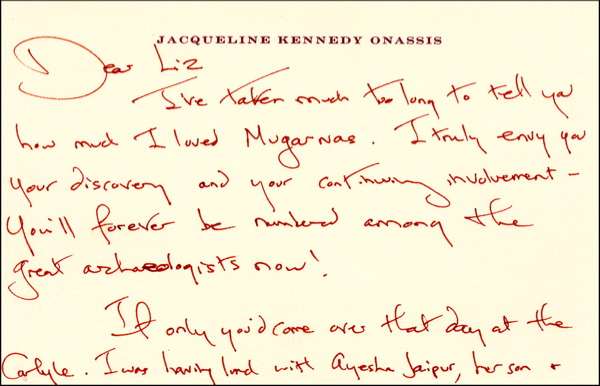 JACQUELINE KENNEDY ONASSIS
Dear Liz
I've taken much too long to tell you
how much I loved Mugarnas. I truly envy you
your discovery and your continuing involvement -
You'll forever be numbered among the
great archaeologists now!
If only you'd come over that day at the
Carlyle. I was having lunch with Ayesha Jaipur, her son +